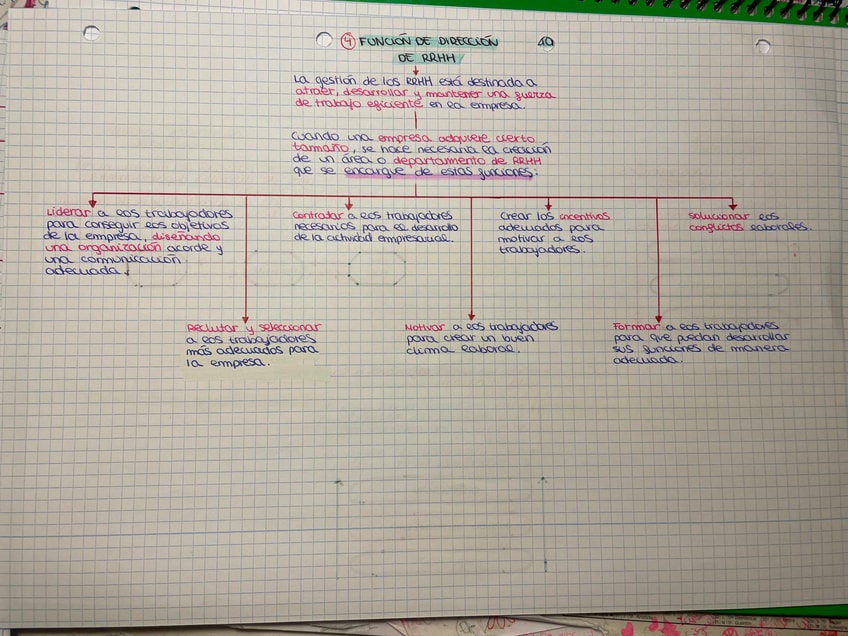 ④ FUNCIÓN DE DIRECCIÓN
DE RRHH
La gestión de los RRHH está destinada a
atraer, desarrollar y mantener una fuerza
de trabajo eficiente en la empresa.
Cuando una empresa adquiere cierto
tamaño, se hace necesaria la creación
de un área o departamento de RRHH
que se encargue de estas funciones:
Liderar a los trabajadores
para conseguir los objetivos
de la empresa, diseñando
una organización acorde y
una comunicación
adecuada.
Contratar a los trabajadores
necesarios para el desarrollo
de la actividad empresarial.
Crear los incentivos
adecuados para
motivar a los
trabajadores.
Solucionar los
conflictos laborales.
Reclutar y seleccionar
a los trabajadores
más adecuados para
la empresa.
Motivar a los trabajadores
para crear un buen
clima laboral.
Formar a los trabajadores
para que puedan desarrollar
sus funciones de manera
adecuada.